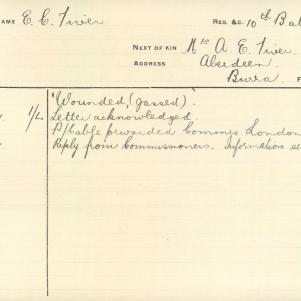 NAME E. C. Tiver REG. &C. 10th Bat
NEXT OF KIN Mrs A. E. Tiver
ADDRESS Aberdeen
Burra F
"Wounded, (gassed)".
1/L Letter acknowledged.
P/Cable forwarded Comings London
Reply from Commissioners. Information se